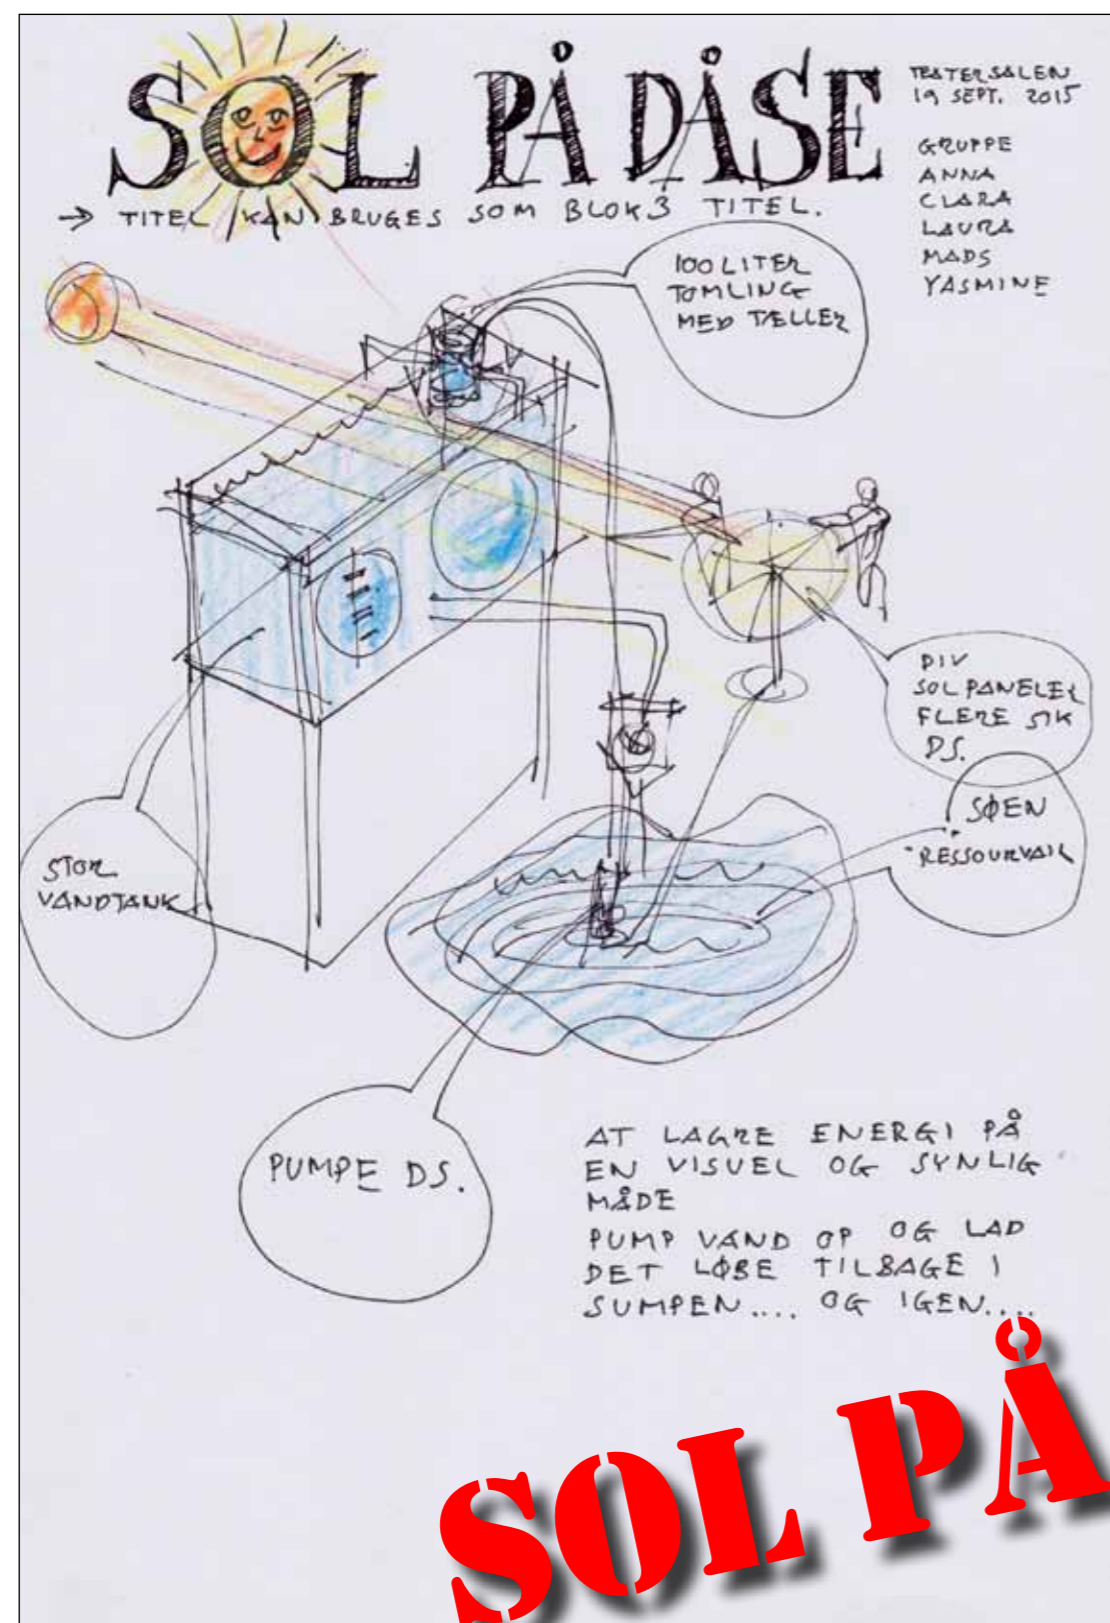 SOL PÅ DÅSE
TEATERSALEN
19 SEPT. 2015
GRUPPE
ANNA
CLARA
LAURA
MADS
YASMINE
→ TITEL KAN BRUGES SOM BLOK3 TITEL.
100 LITER
TØMLING
MED TÆLLER
DIV
SOLPANELER
FLERE STK
DS.
SØEN
STOR
VANDTANK
PUMPE DS.
AT LAGRE ENERGI PÅ
EN VISUEL OG SYNLIG
MÅDE
PUMP VAND OP OG LAD
DET LØBE TILBAGE I
SUMPEN.... OG IGEN....
SOL PÅ